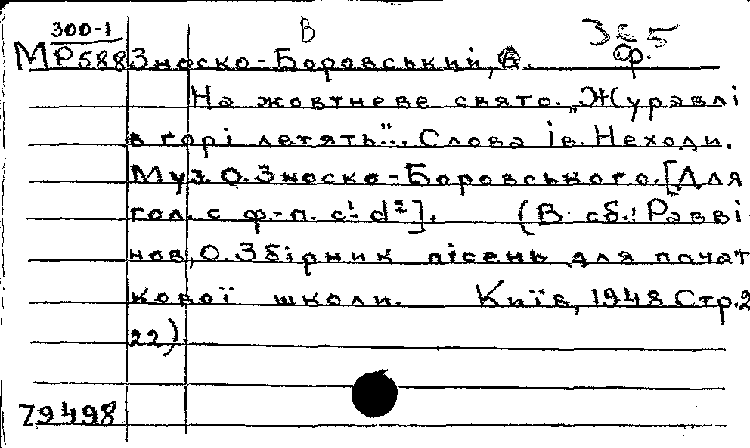 300-1 В 365
МР588 Зноско-Боровський, О. ф.
На жовтневе свято. „Журавлі
в горі летять". Слова Ів. Неходи.
Муз. О. Зноско-Боровського. [Для
гол. с ф-п. c¹-d²]. (В сб.: Равві
нов, О. Збірник пісень для почат
кової школи. Київ, 1948 Стр. 2
22)
79498